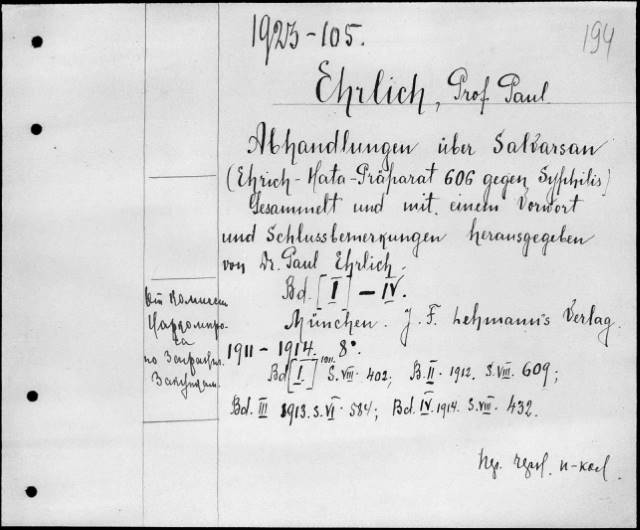 1923-105.
194
Ehrlich, Prof. Paul
Abhandlungen über Salvarsan
(Ehrich-Hata-Präparat 606 gegen Syphilis)
Gesammelt und mit einem Vorwort
und Schlussbemerkungen herausgegeben
von Dr. Paul Ehrlich.
Bd. [I] – IV.
München. J. F. Lehmann's Verlag.
1911 – 1914. 8°.
Bd [I.] 1911. S. VIII. 402; B. II. 1912. S. VIII. 609;
Bd. III 1913. S. VI. 584; Bd. IV. 1914. S. VIII. 432.
От Комиссии
Наркомпро-
са
по Заграничн.
Закупкам.